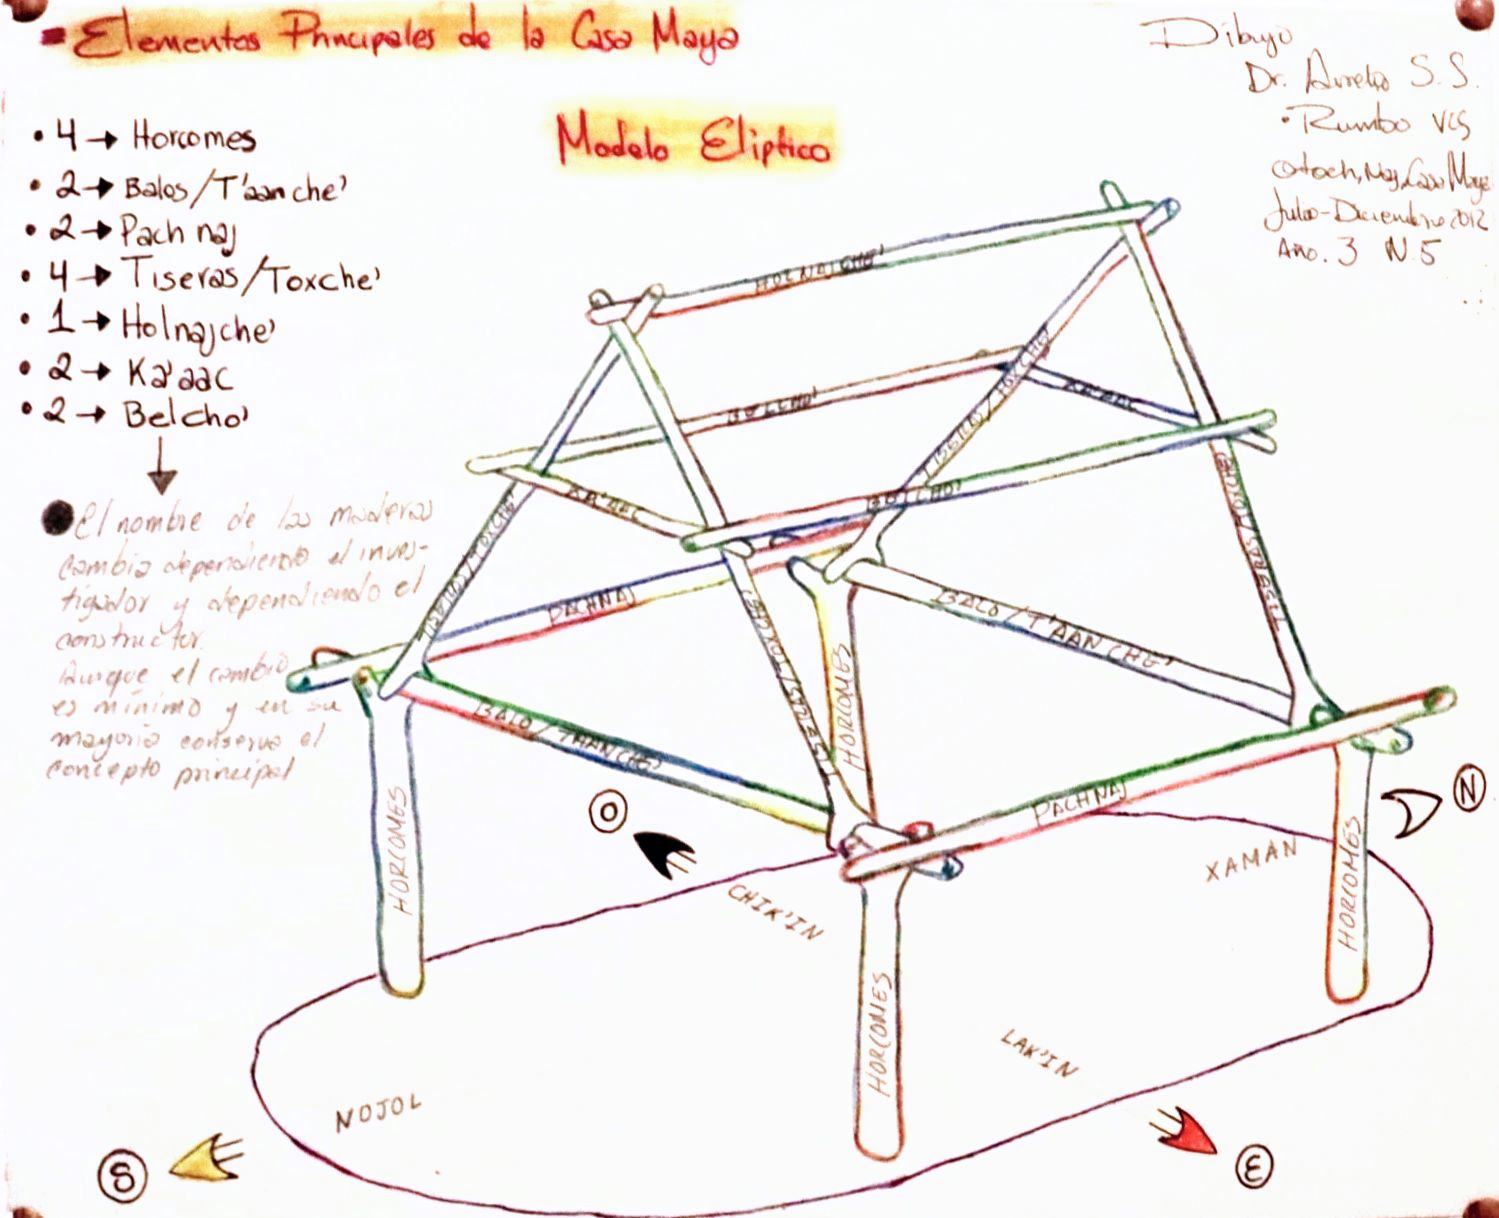 Elementos Principales de la Casa Maya
Modelo Eliptico
Dibujo
Dr. Aurelio S. S.
• Rumbo VCS
Otoch, Naj, Casa Maya
Julio-Diciembre 2012
Año. 3 N. 5
• 4 → Horcomes
• 2 → Balos/T'aanche'
• 2 → Pach naj
• 4 → Tiseras/Toxche'
• 1 → Holnajche'
• 2 → Ka'aac
• 2 → Belcho'
El nombre de las maderas
cambia dependiendo el inves-
tigador y dependiendo el
constructor.
Aunque el cambio
es mínimo y en su
mayoría conserva el
concepto principal
HOLNAJCHE'
BELCHO'
KA'AAC
TISERA/TOXCHE'
TISERAS/TOXCHE'
BELCHO'
KA'AAC
TISERAS/TOXCHE'
PACHNAJ
BALO/T'AANCHE'
TISERAS/TOXCHE'
HORCOMES
BALO/TAANCHE'
PACHNAJ
HORCOMES
HORCOMES
HORCONES
O
CHIK'IN
N
XAMAN
LAK'IN
E
NOJOL
S